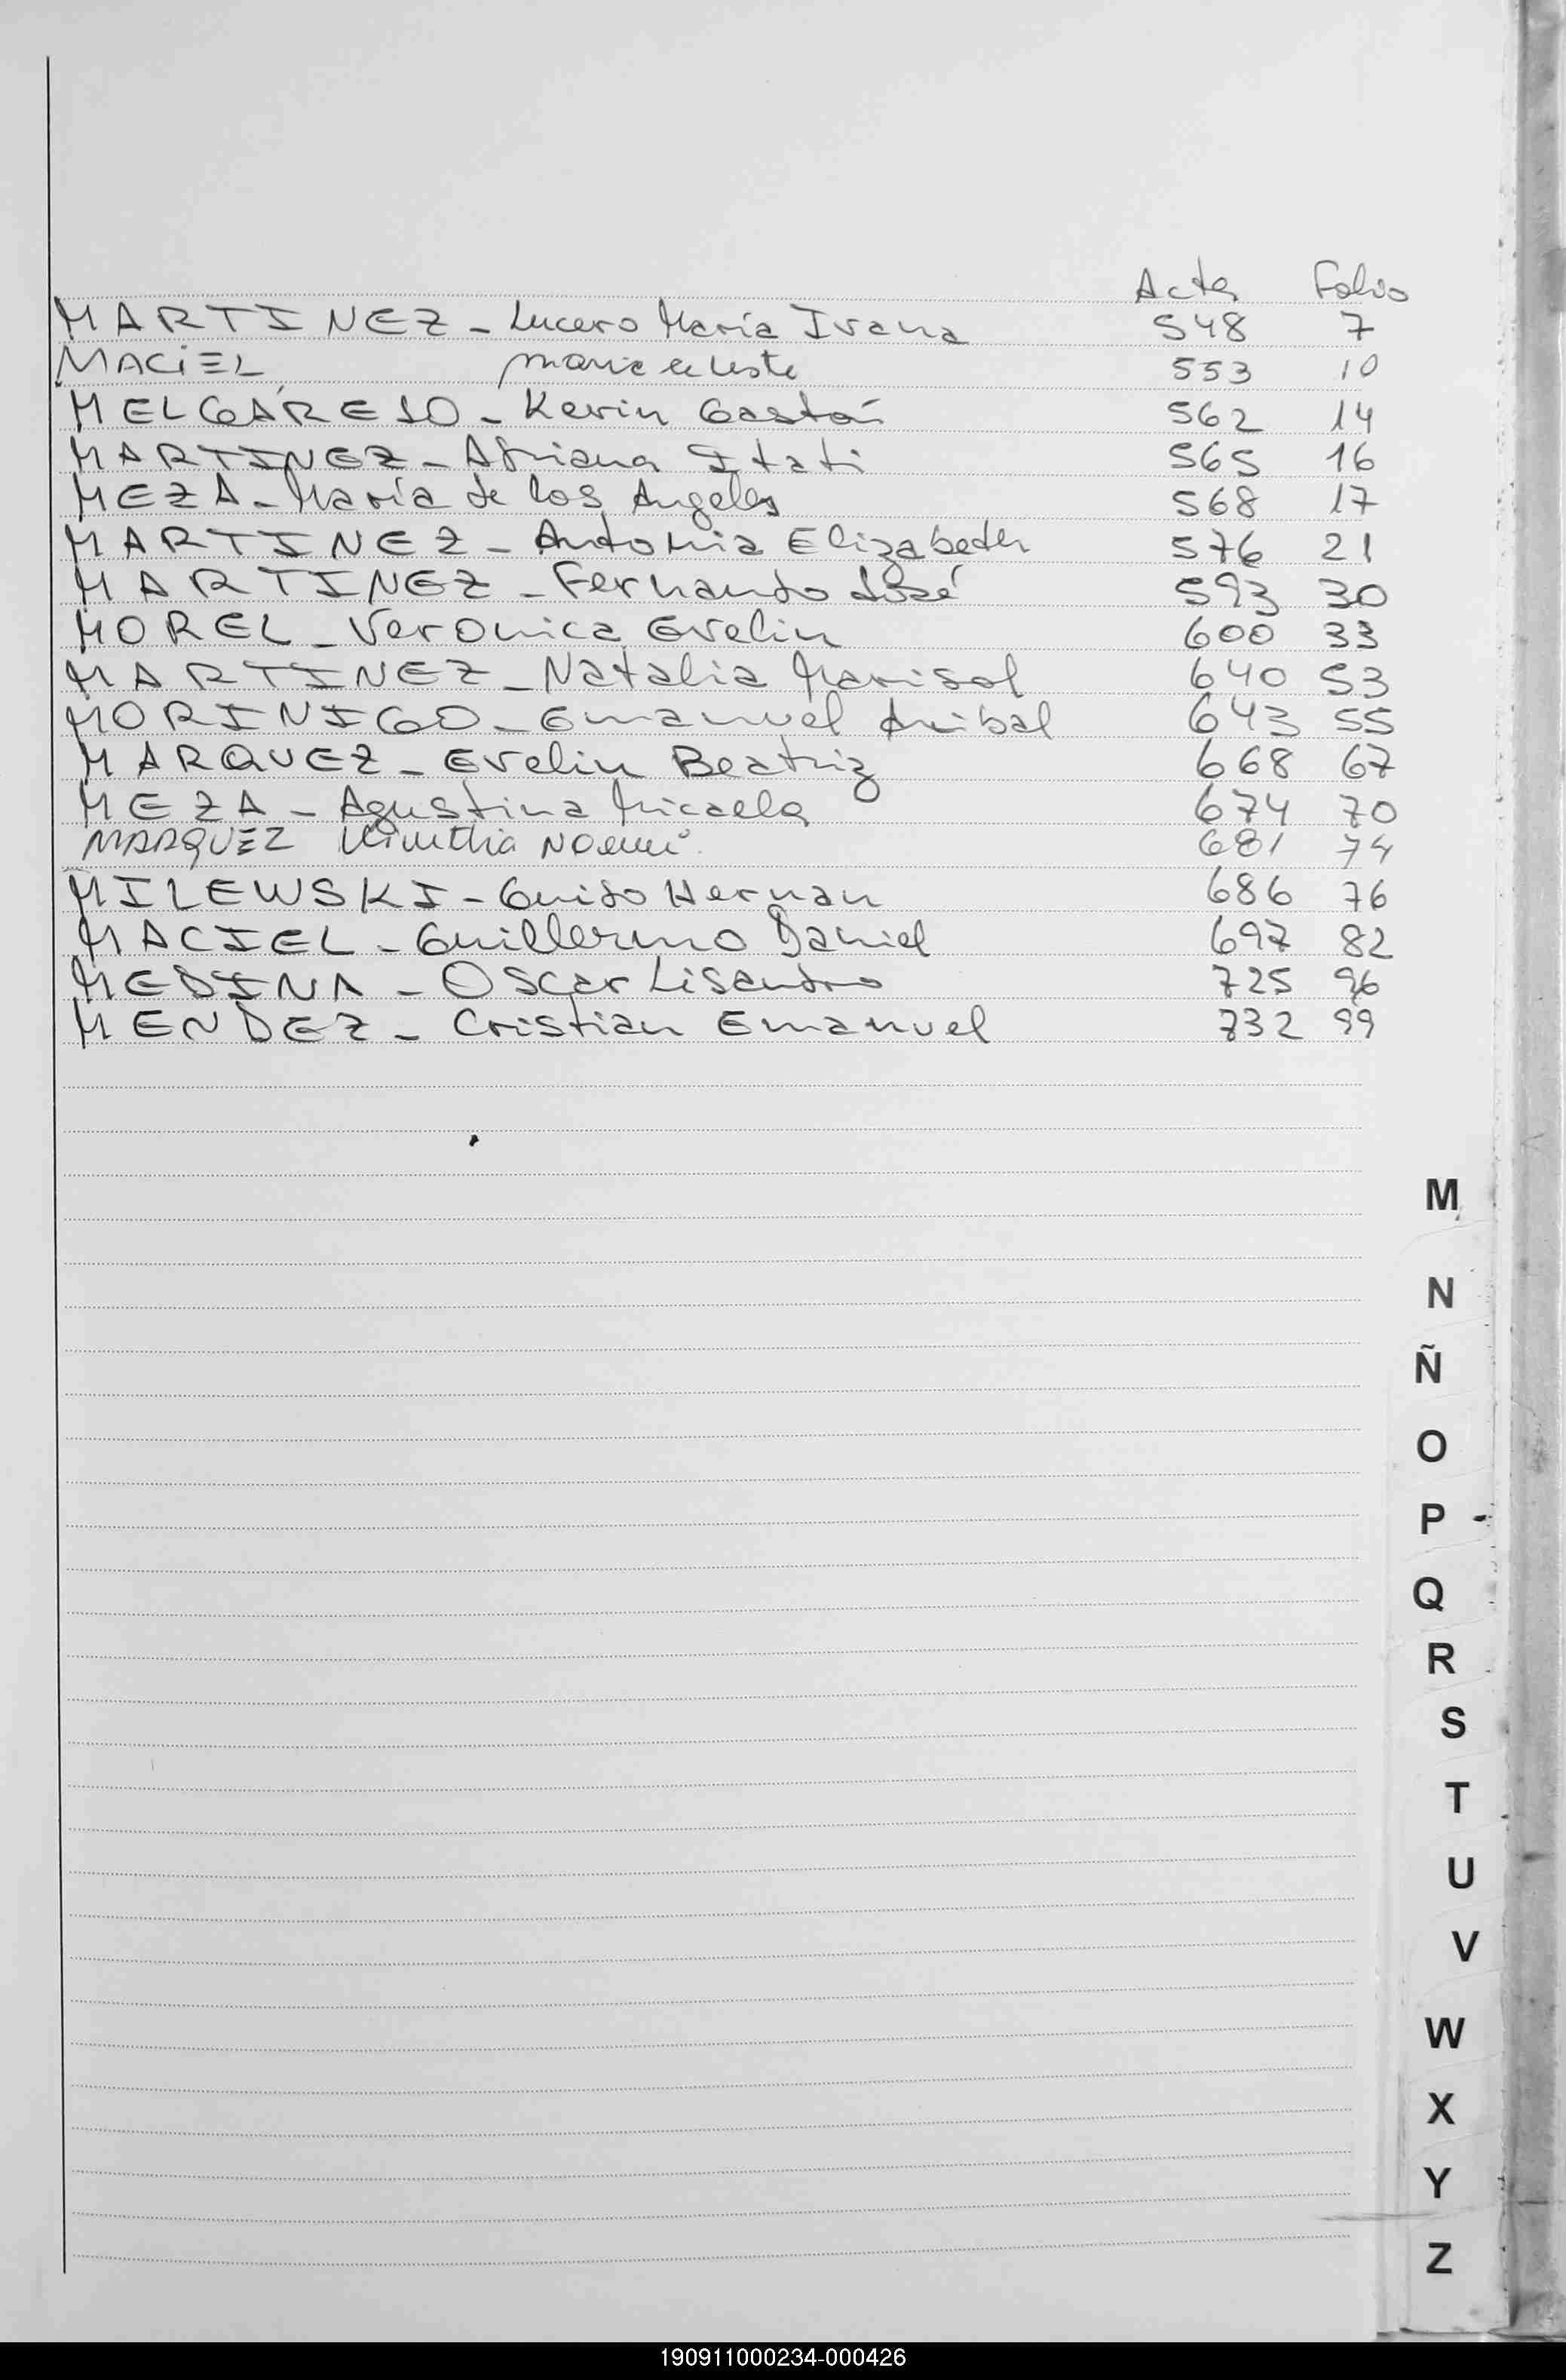 Acta Folio
MARTINEZ - Lucero María Ivana 548 7
MACIEL maria celeste 553 10
MELGAREJO - Kevin Gastón 562 14
MARTINEZ - Adriana Itati 565 16
MEZA - María de los Angeles 568 17
MARTINEZ - Antonia Elizabeth 576 21
MARTINEZ - Fernando José 593 30
MOREL - Veronica Evelin 600 33
MARTINEZ - Natalia Marisol 640 53
MORINIGO - Emanuel Anibal 643 55
MARQUEZ - Evelin Beatriz 668 67
MEZA - Agustina Micaela 674 70
MARQUEZ Noemí 681 74
MILEWSKI - Guido Hernan 686 76
MACIEL - Guillermo Daniel 697 82
MEDINA - Oscar Lisandro 725 96
MENDEZ - Cristian Emanuel 732 99
M
N
Ñ
O
P
Q
R
S
T
U
V
W
X
Y
Z
190911000234-000426